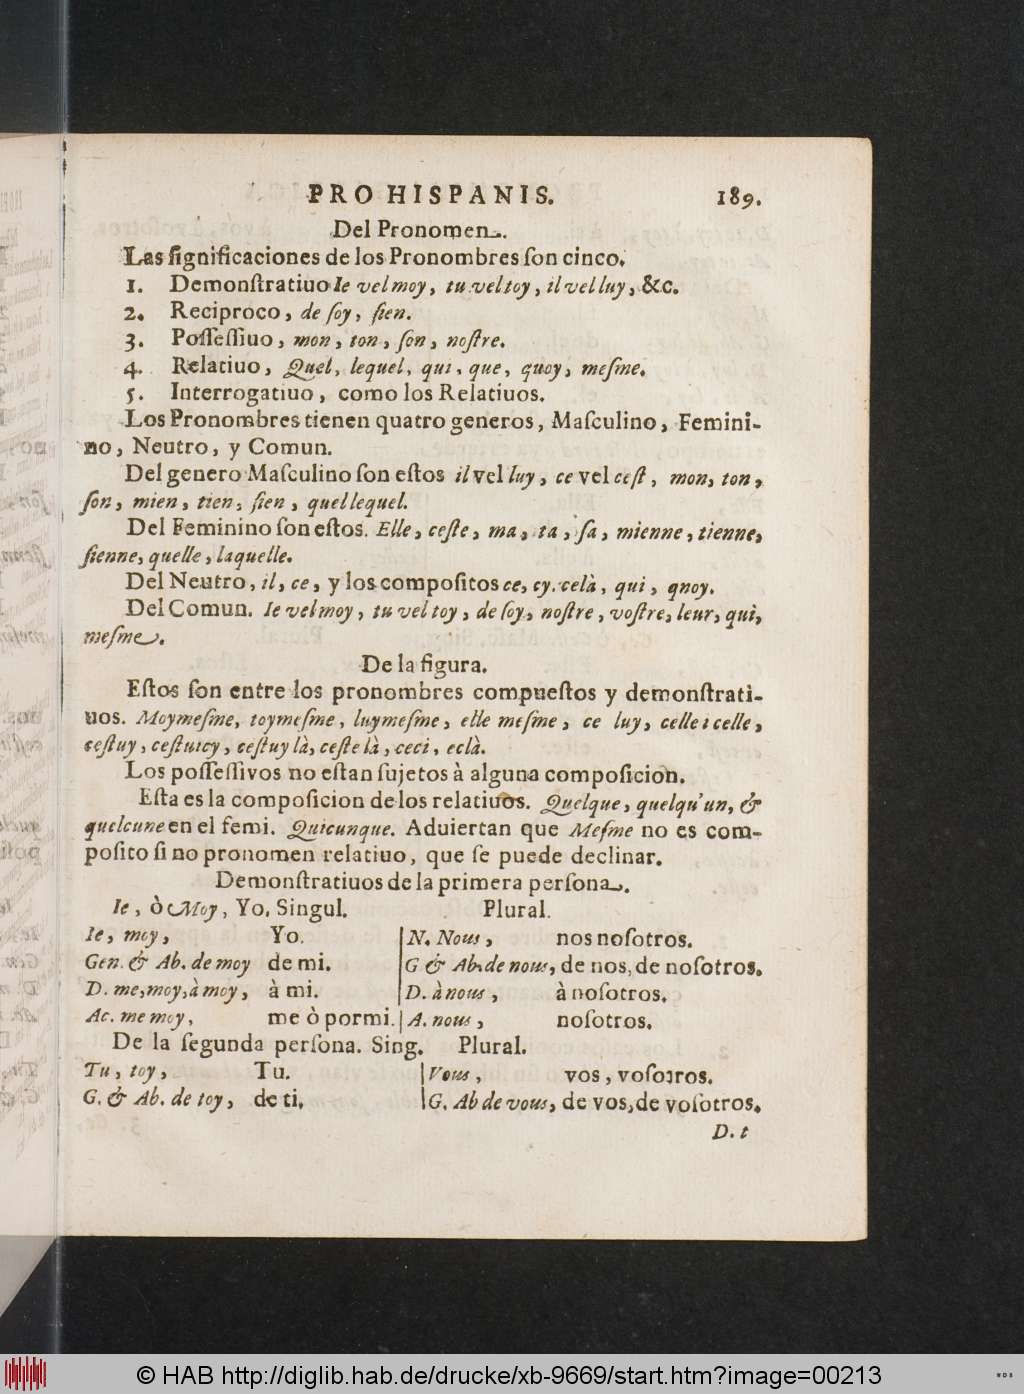 PRO HISPANIS. 189.
Del Pronomen.
Las ſignificaciones de los Pronombres ſon cinco.
1. Demonſtratiuo Ie vel moy, tu vel toy, il vel luy, &c.
2. Reciproco, de ſoy, ſien.
3. Poſſeſſiuo, mon, ton, ſon, noſtre.
4. Relatiuo, Quel, lequel, qui, que, quoy, meſme.
5. Interrogatiuo, como los Relatiuos.
Los Pronombres tienen quatro generos, Maſculino, Femini-
no, Neutro, y Comun.
Del genero Maſculino ſon eſtos il vel luy, ce vel ceſt, mon, ton,
ſon, mien, tien, ſien, quel lequel.
Del Feminino ſon eſtos. Elle, ceſte, ma, ta, ſa, mienne, tienne,
ſienne, quelle, laquelle.
Del Neutro, il, ce, y los compoſitos ce, cy. celà, qui, qnoy.
Del Comun. Ie vel moy, tu vel toy, de ſoy, noſtre, voſtre, leur, qui,
meſme.
De la figura.
Eſtos ſon entre los pronombres compueſtos y demonſtrati-
uos. Moymeſme, toymeſme, luymeſme, elle meſme, ce luy, celle: celle,
ceſtuy, ceſtuicy, ceſtuy là, ceſte là, ceci, eclà.
Los poſſeſſivos no eſtan ſujetos à alguna compoſicion.
Eſta es la compoſicion de los relatiuos. Quelque, quelqu'un, &
quelcune en el femi. Quicunque. Aduiertan que Meſme no es com-
poſito ſi no pronomen relatiuo, que ſe puede declinar.
Demonſtratiuos de la primera perſona.
Ie, ò Moy, Yo. Singul. Plural.
Ie, moy, Yo. N. Nous, nos noſotros.
Gen. & Ab. de moy de mi. G & Ab. de nous, de nos, de noſotros.
D. me, moy, à moy, à mi. D. à nous, à noſotros.
Ac. me moy, me ò por mi. A. nous, noſotros.
De la ſegunda perſona. Sing. Plural.
Tu, toy, Tu. Vous, vos, voſotros.
G. & Ab. de toy, de ti. G. Ab de vous, de vos, de voſotros.
D. t
© HAB http://diglib.hab.de/drucke/xb-9669/start.htm?image=00213